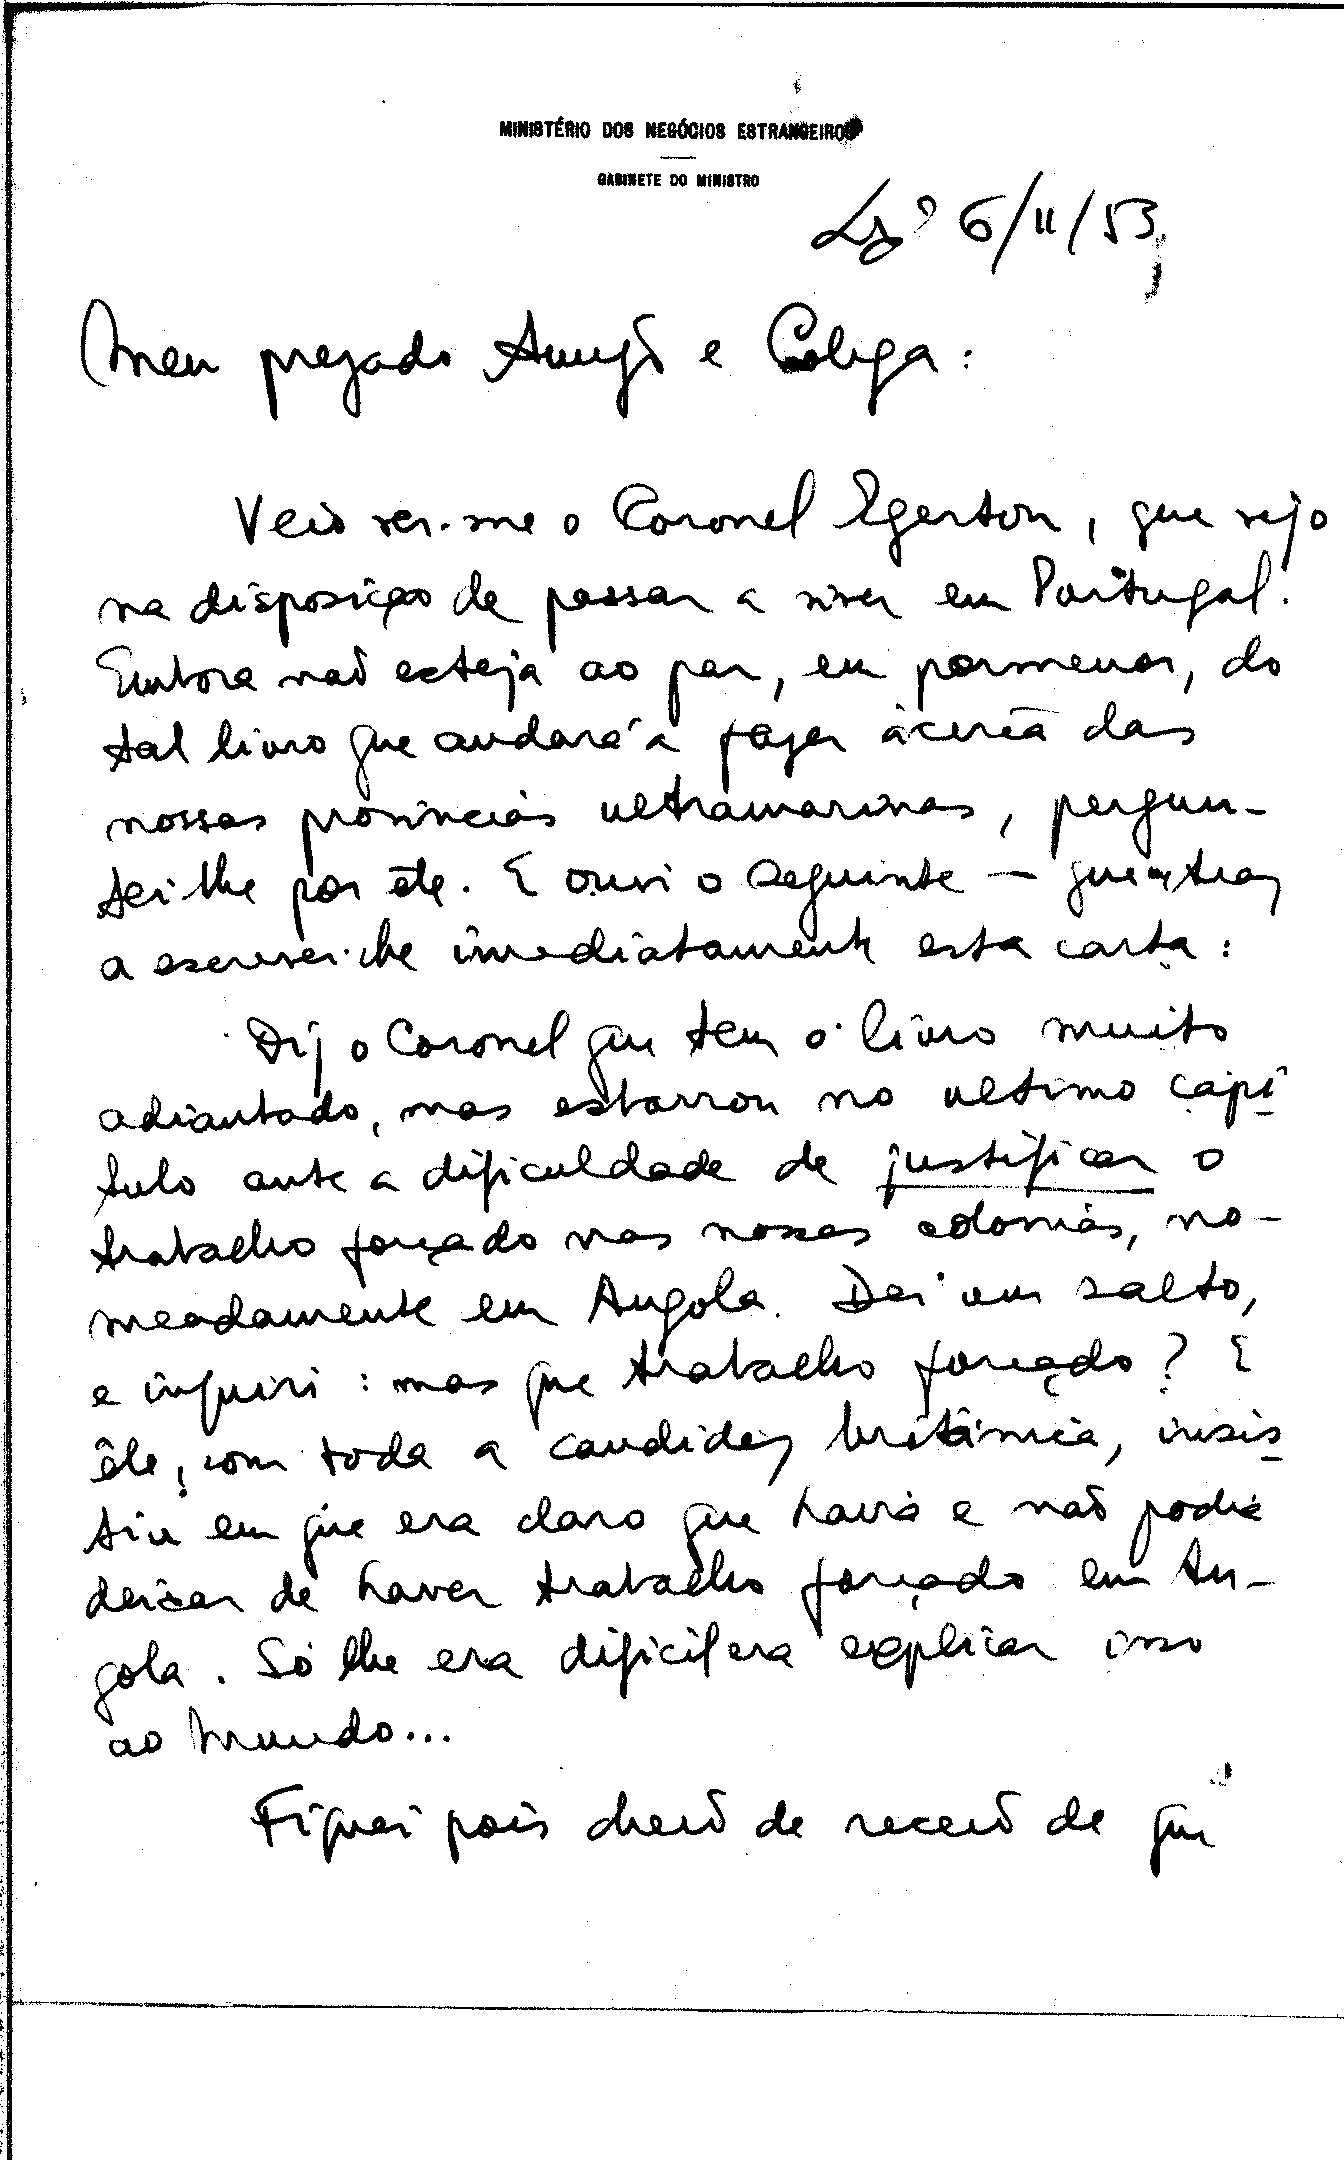 MINISTÉRIO DOS NEGÓCIOS ESTRANGEIROS
GABINETE DO MINISTRO
Lxª 6/11/53,
Meu prezado Amigo e Colega:
Veio ver-me o Coronel Egerton, que vejo
na disposição de passar a viver em Portugal.
Embora não esteja ao par, em pormenor, do
tal livro que andará a fazer àcerca das
nossas provincias ultramarinas, pergun-
tei-lhe por êle. E ouvi o seguinte — que me traz
a escrever-lhe imediatamente esta carta:
Diz o Coronel que tem o livro muito
adiantado, mas estarrou no ultimo capí
tulo ante a dificuldade de justificar o
trabalho forçado nas nossas colonias, no-
meadamente em Angola. Dei um salto,
e inquiri: mas que trabalho forçado? E
êle, com toda a candidez britânica, insis
tiu em que era claro que havia e não podia
deixar de haver trabalho forçado em An-
gola. Só lhe era dificil era explicar isso
ao Mundo...
Fiquei pois cheio de receio de que